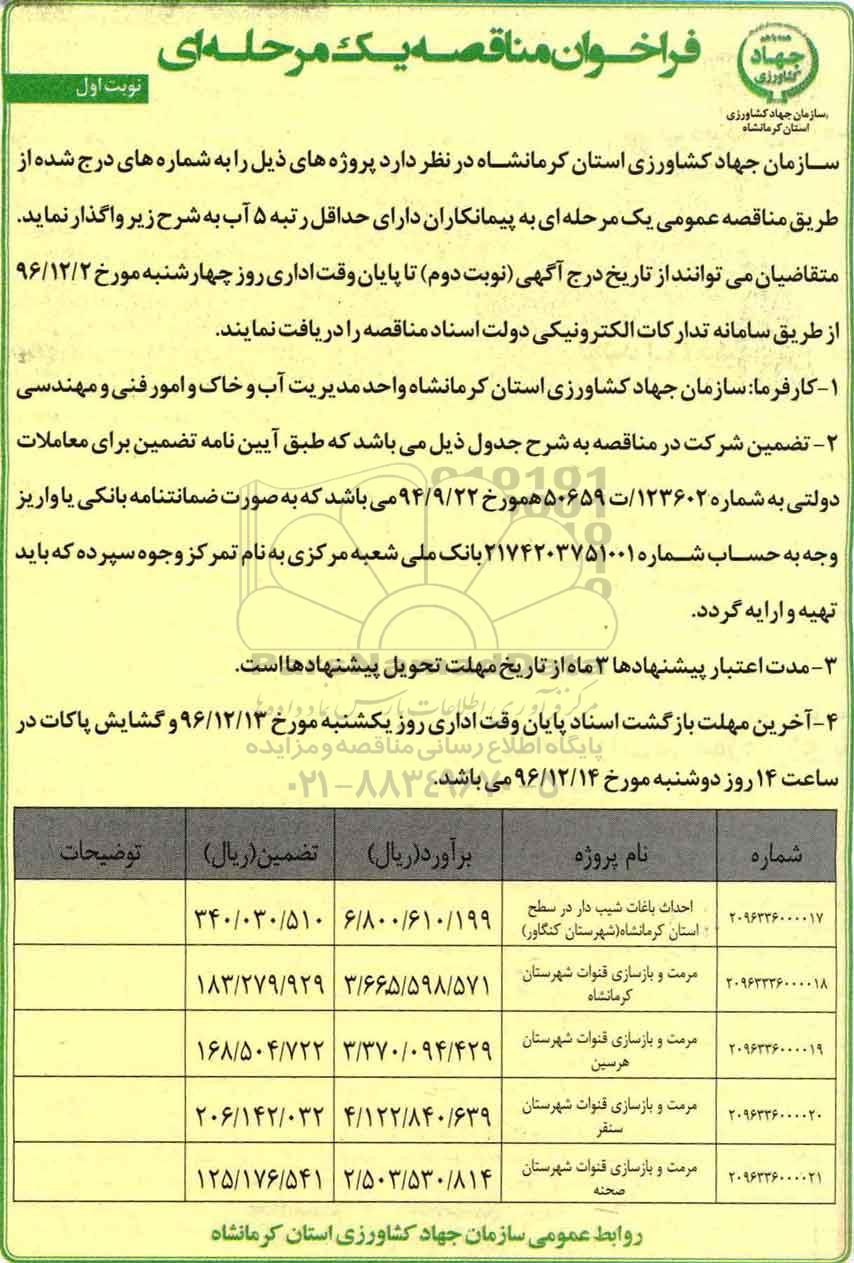 فراخوان مناقصه یک مرحله‌ای
نوبت اول
همه با هم
جهاد
کشاورزی
سازمان جهاد کشاورزی
استان کرمانشاه
سازمان جهاد کشاورزی استان کرمانشاه در نظر دارد پروژه های ذیل را به شماره های درج شده از
طریق مناقصه عمومی یک مرحله ای به پیمانکاران دارای حداقل رتبه ۵ آب به شرح زیر واگذار نماید.
متقاضیان می توانند از تاریخ درج آگهی (نوبت دوم) تا پایان وقت اداری روز چهارشنبه مورخ ۹۶/۱۲/۲
از طریق سامانه تدارکات الکترونیکی دولت اسناد مناقصه را دریافت نمایند.
۱-کارفرما: سازمان جهاد کشاورزی استان کرمانشاه واحد مدیریت آب و خاک و امور فنی و مهندسی
۲- تضمین شرکت در مناقصه به شرح جدول ذیل می باشد که طبق آیین نامه تضمین برای معاملات
دولتی به شماره ۱۲۳۶۰۲/ت ۵۰۶۵۹ه مورخ ۹۴/۹/۲۲ می باشد که به صورت ضمانتنامه بانکی یا واریز
وجه به حساب شماره ۲۱۷۴۲۰۳۷۵۱۰۰۱ بانک ملی شعبه مرکزی به نام تمرکز وجوه سپرده که باید
تهیه و ارایه گردد.
۳-مدت اعتبار پیشنهادها ۳ ماه از تاریخ مهلت تحویل پیشنهادها است.
مرکز فرآوری اطلاعات پارس نماد داده‌ها
۴-آخرین مهلت بازگشت اسناد پایان وقت اداری روز یکشنبه مورخ ۹۶/۱۲/۱۳ و گشایش پاکات در
پایگاه اطلاع رسانی مناقصه و مزایده
ساعت ۱۴ روز دوشنبه مورخ ۹۶/۱۲/۱۴ می باشد.
۰۲۱-۸۸۳۴۹۶۷۰-۵
شماره نام پروژه برآورد(ریال) تضمین(ریال) توضیحات
۲۰۹۶۳۳۶۰۰۰۰۱۷ احداث باغات شیب دار در سطح استان کرمانشاه(شهرستان کنگاور) ۶/۸۰۰/۶۱۰/۱۹۹ ۳۴۰/۰۳۰/۵۱۰
۲۰۹۶۳۳۳۶۰۰۰۰۱۸ مرمت و بازسازی قنوات شهرستان کرمانشاه ۳/۶۶۵/۵۹۸/۵۷۱ ۱۸۳/۲۷۹/۹۲۹
۲۰۹۶۳۳۶۰۰۰۰۱۹ مرمت و بازسازی قنوات شهرستان هرسین ۳/۳۷۰/۰۹۴/۴۲۹ ۱۶۸/۵۰۴/۷۲۲
۲۰۹۶۳۳۶۰۰۰۰۲۰ مرمت و بازسازی قنوات شهرستان سنقر ۴/۱۲۲/۸۴۰/۶۳۹ ۲۰۶/۱۴۲/۰۳۲
۲۰۹۶۳۳۶۰۰۰۰۲۱ مرمت و بازسازی قنوات شهرستان صحنه ۲/۵۰۳/۵۳۰/۸۱۴ ۱۲۵/۱۷۶/۵۴۱
روابط عمومی سازمان جهاد کشاورزی استان کرمانشاه